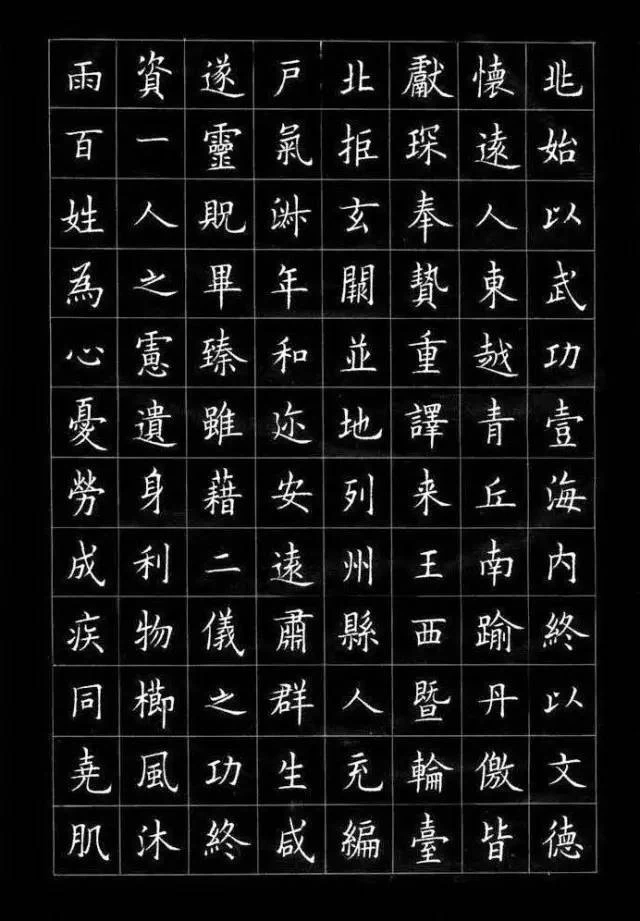 兆始以武功壹海内終以文德
懷遠人東越青丘南踰丹儌皆
獻琛奉贄重譯来王西暨輪臺
北拒玄闕並地列州縣人充編
戶氣淑年和迩安遠肅群生咸
遂靈貺畢臻雖藉二儀之功終
資一人之慮遺身利物櫛風沐
雨百姓為心憂勞成疾同堯肌